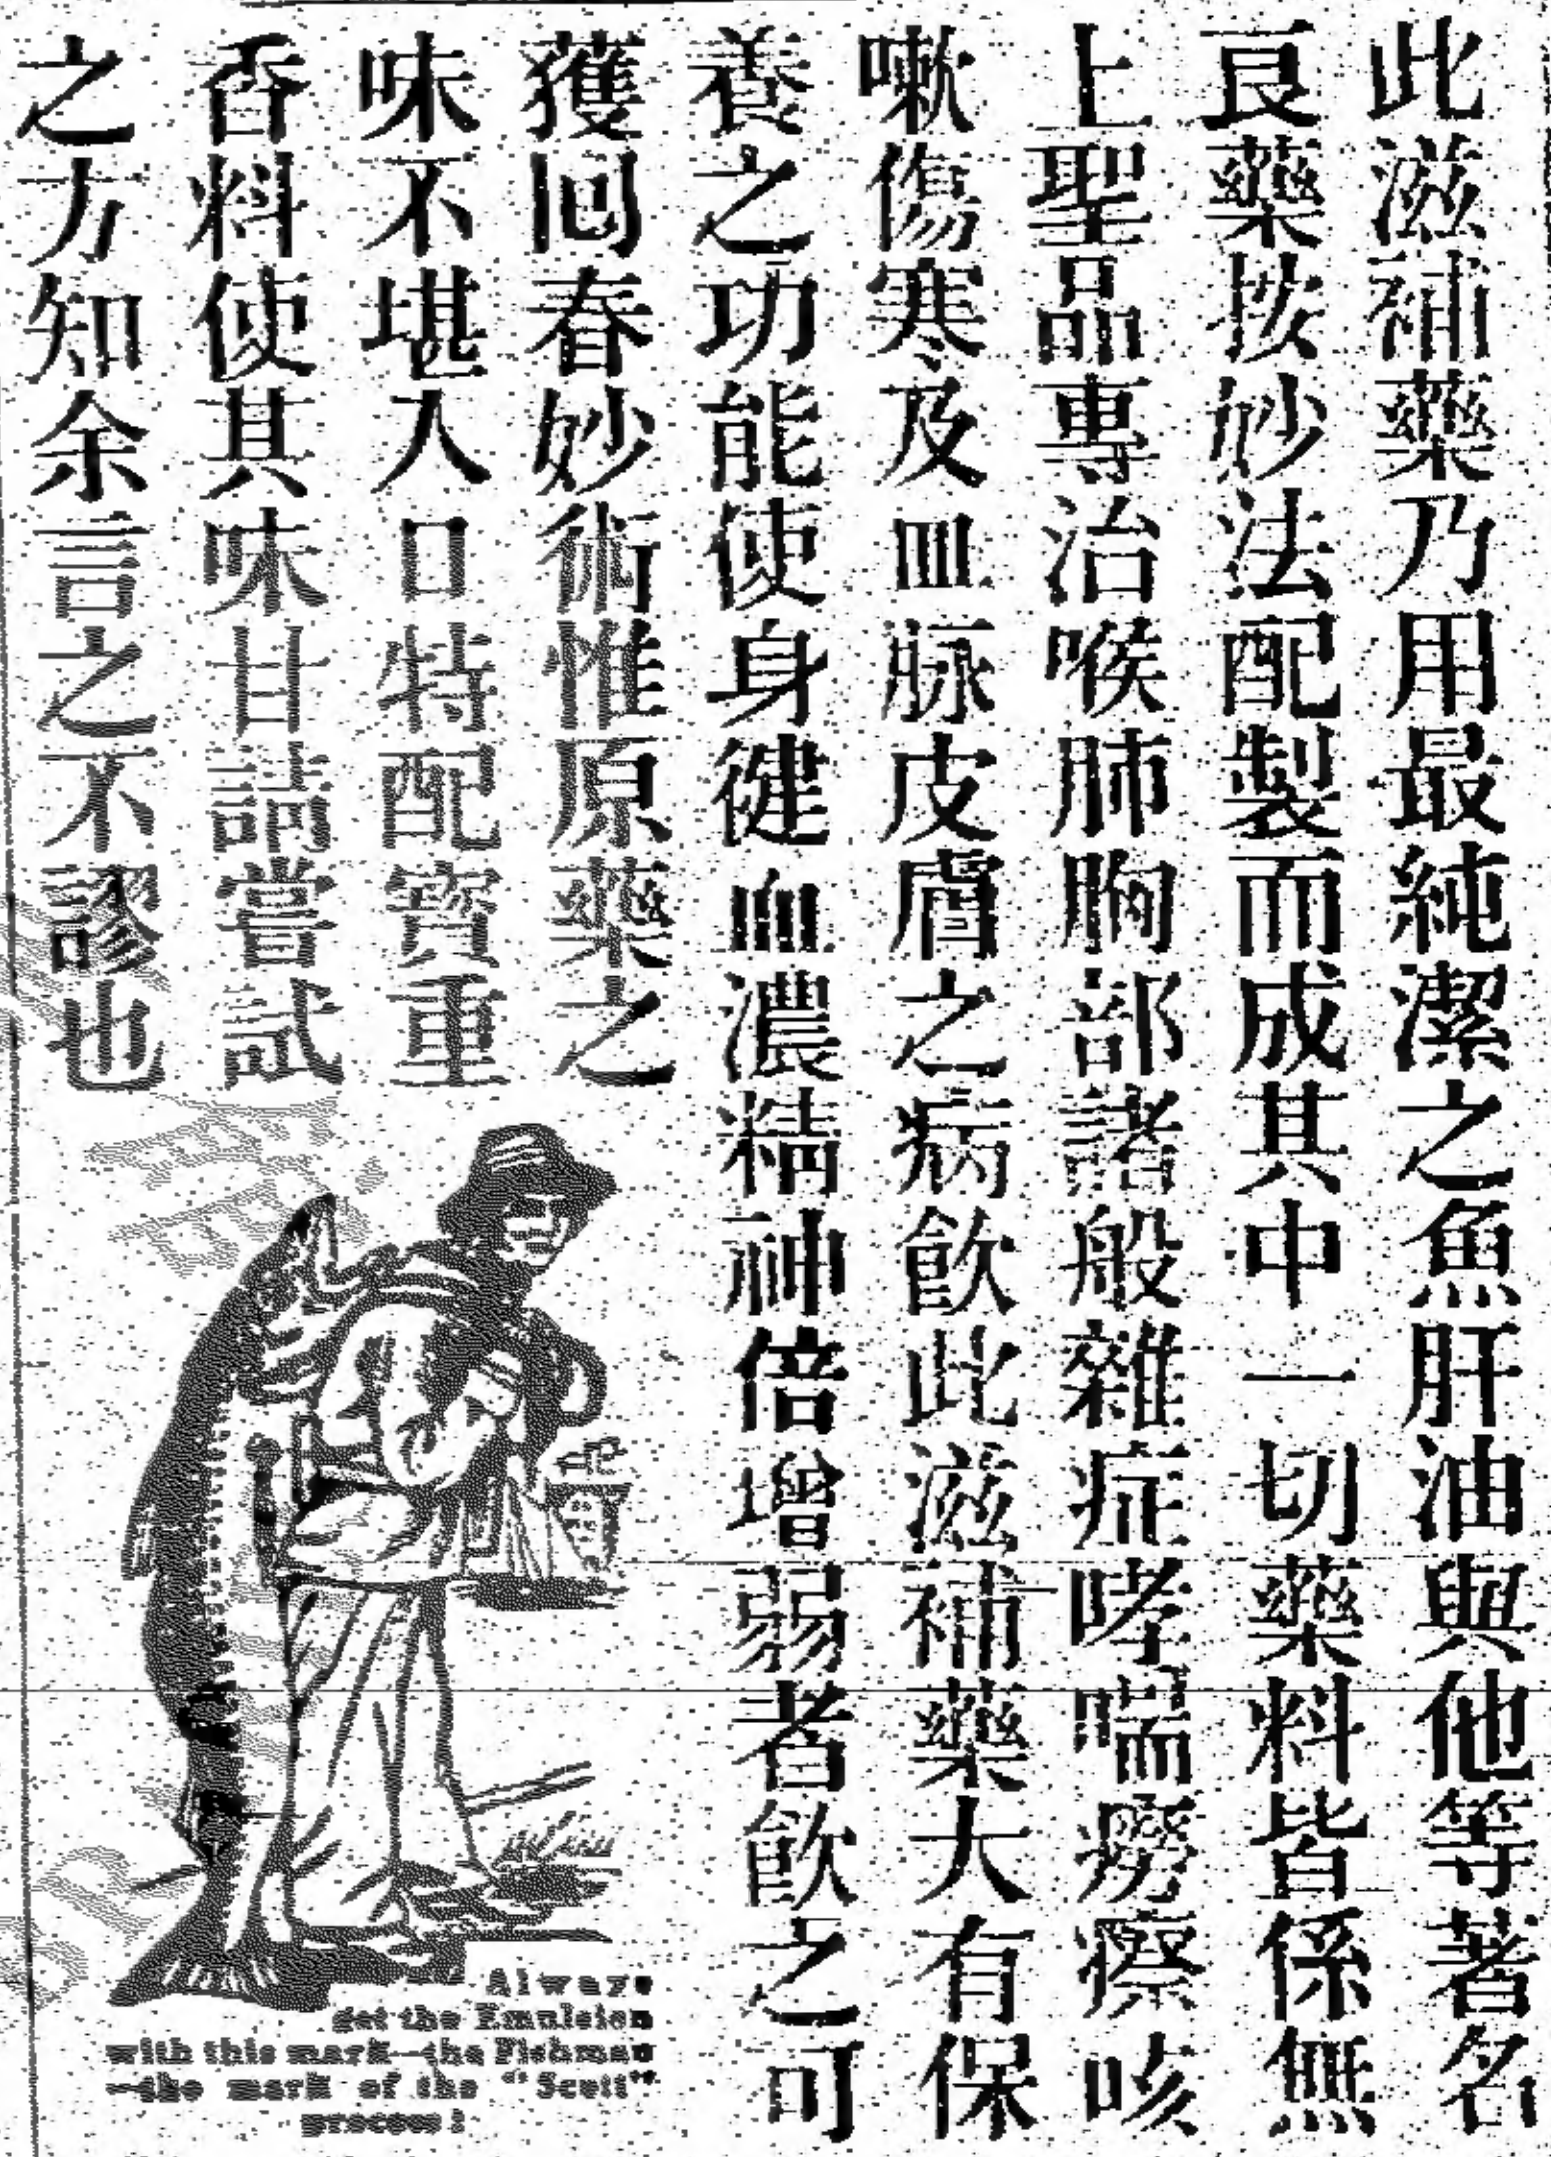 此滋補藥乃用最純潔之魚肝油與他等著名
良藥按妙法配製而成其中一切藥料皆係無
上聖品專治喉肺胸部諸般雜症哮喘癆瘵咳
嗽傷寒及血脉皮膚之病飲此滋補藥大有保
養之功能使身健血濃精神倍增弱者飲之可
獲回春妙術惟原藥之
味不堪入口特配寶重
香料使其味甘請嘗試
之方知余言之不謬也
Always
get the Emulsion
with this mark—the Fishman
—the mark of the "Scott"
process!